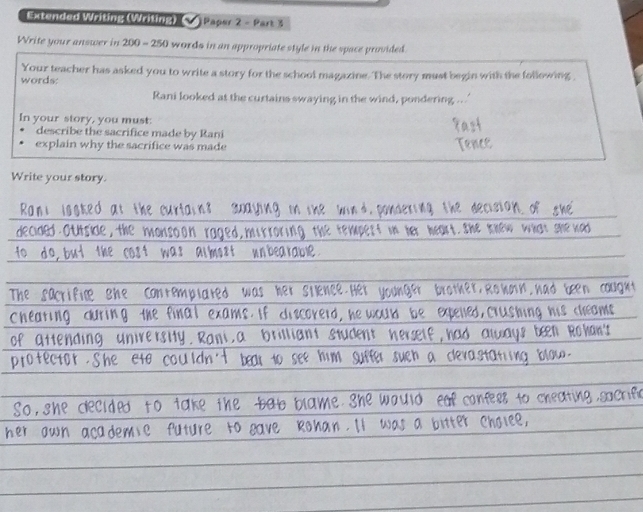 Extended Writing (Writing) Paper 2 - Part 3
Write your answer in 200 - 250 words in an appropriate style in the space provided.
Your teacher has asked you to write a story for the school magazine. The story must begin with the following
words:
Rani looked at the curtains swaying in the wind, pondering ...'
In your story, you must:
• describe the sacrifice made by Rani
• explain why the sacrifice was made
Past
Tence
Write your story.
Rani looked at the curtains swaying in the wind, pondering the decision of she
decided. Outside, the monsoon raged, mirroring the tempest in her heart. She knew what she had
to do, but the cost was almost unbearable.
The sacrifice she contemplated was her silence. Her younger brother, Rohan, had been caught
cheating during the final exams. If discoverd, he would be expelled, crushing his dreams
of attending university. Rani, a brilliant student herself, had always been Rohan's
protector. She couldn't bear to see him suffer such a devastating blow.
So, she decided to take the blame. She would confess to cheating, sacrific
her own academic future to save Rohan. It was a bitter choice,